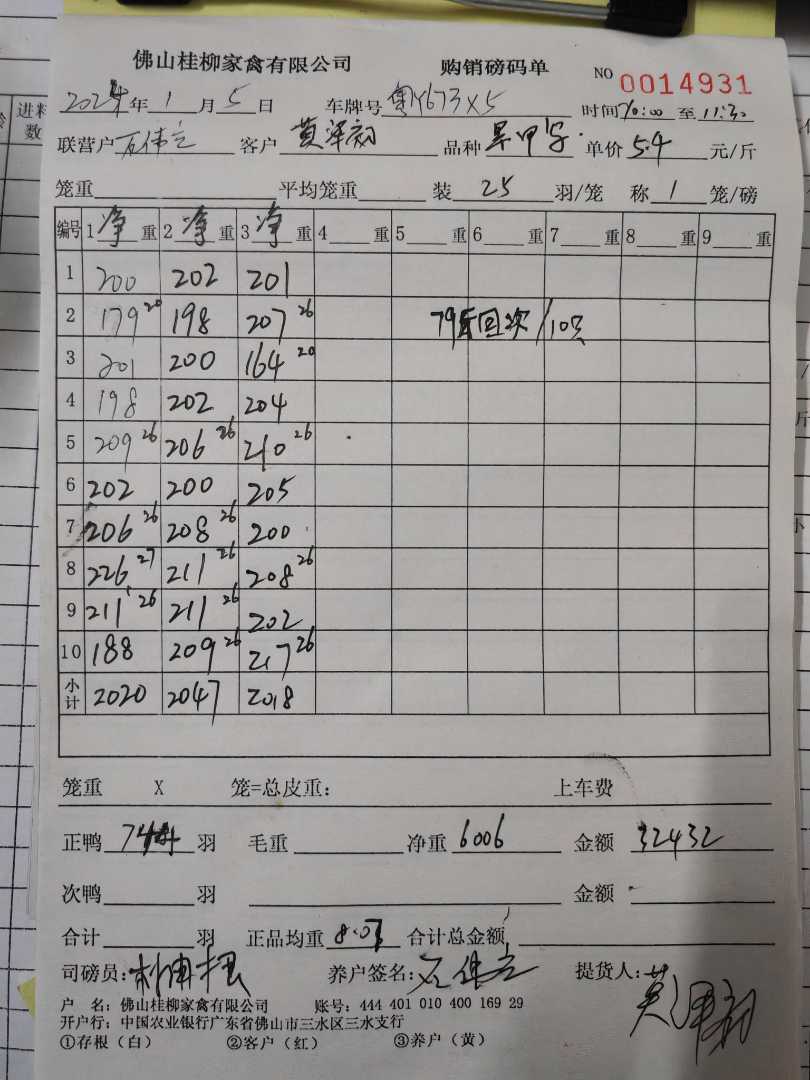 佛山桂柳家禽有限公司 购销磅码单 NO 0014931
2024年 1 月 5 日 车牌号 粤Y673X5 时间 10:00 至 11:30
联营户 石伟立 客户 黄泽初 品种 单价 5.4 元/斤
笼重 平均笼重 装 25 羽/笼 称 1 笼/磅
编号 1 净 重 2 净 重 3 净 重 4 重 5 重 6 重 7 重 8 重 9 重
1 200 202 201
2 179 20 198 207 26 回次/10只
3 201 200 164 20
4 198 202 204
5 209 26 206 26 210 26
6 202 200 205
7 206 26 208 26 200
8 226 27 211 26 208 26
9 211 26 211 26 202
10 188 209 26 217 26
小计 2020 2047 2018
笼重 X 笼=总皮重: 上车费
正鸭 羽 毛重 净重 6006 金额 32432
次鸭 羽 金额
合计 羽 正品均重 8.07 合计总金额
司磅员: 养户签名: 石伟立 提货人: 黄泽初
户 名: 佛山桂柳家禽有限公司 账号: 444 401 010 400 169 29
开户行: 中国农业银行广东省佛山市三水区三水支行
①存根（白） ②客户（红） ③养户（黄）
进料
数
斤